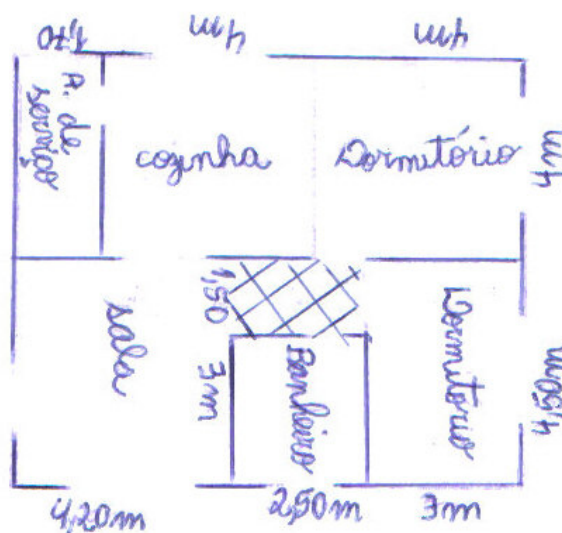 1,70
4m
4m
A. de
serviço
cozinha
Dormitório
4m
sala
1,50
3m
Banheiro
Dormitório
4,50m
4,20m
2,50m
3m